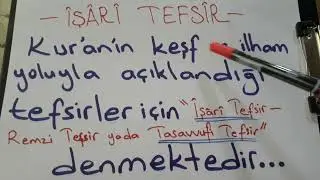 - İŞÂRÎ TEFSÎR -
Kur'an'ın keşf ilham
yoluyla açıklandığı
tefsirler için "İşarî Tefsir -
Remzi Tefsir yada Tasavvufî Tefsir"
denmektedir...